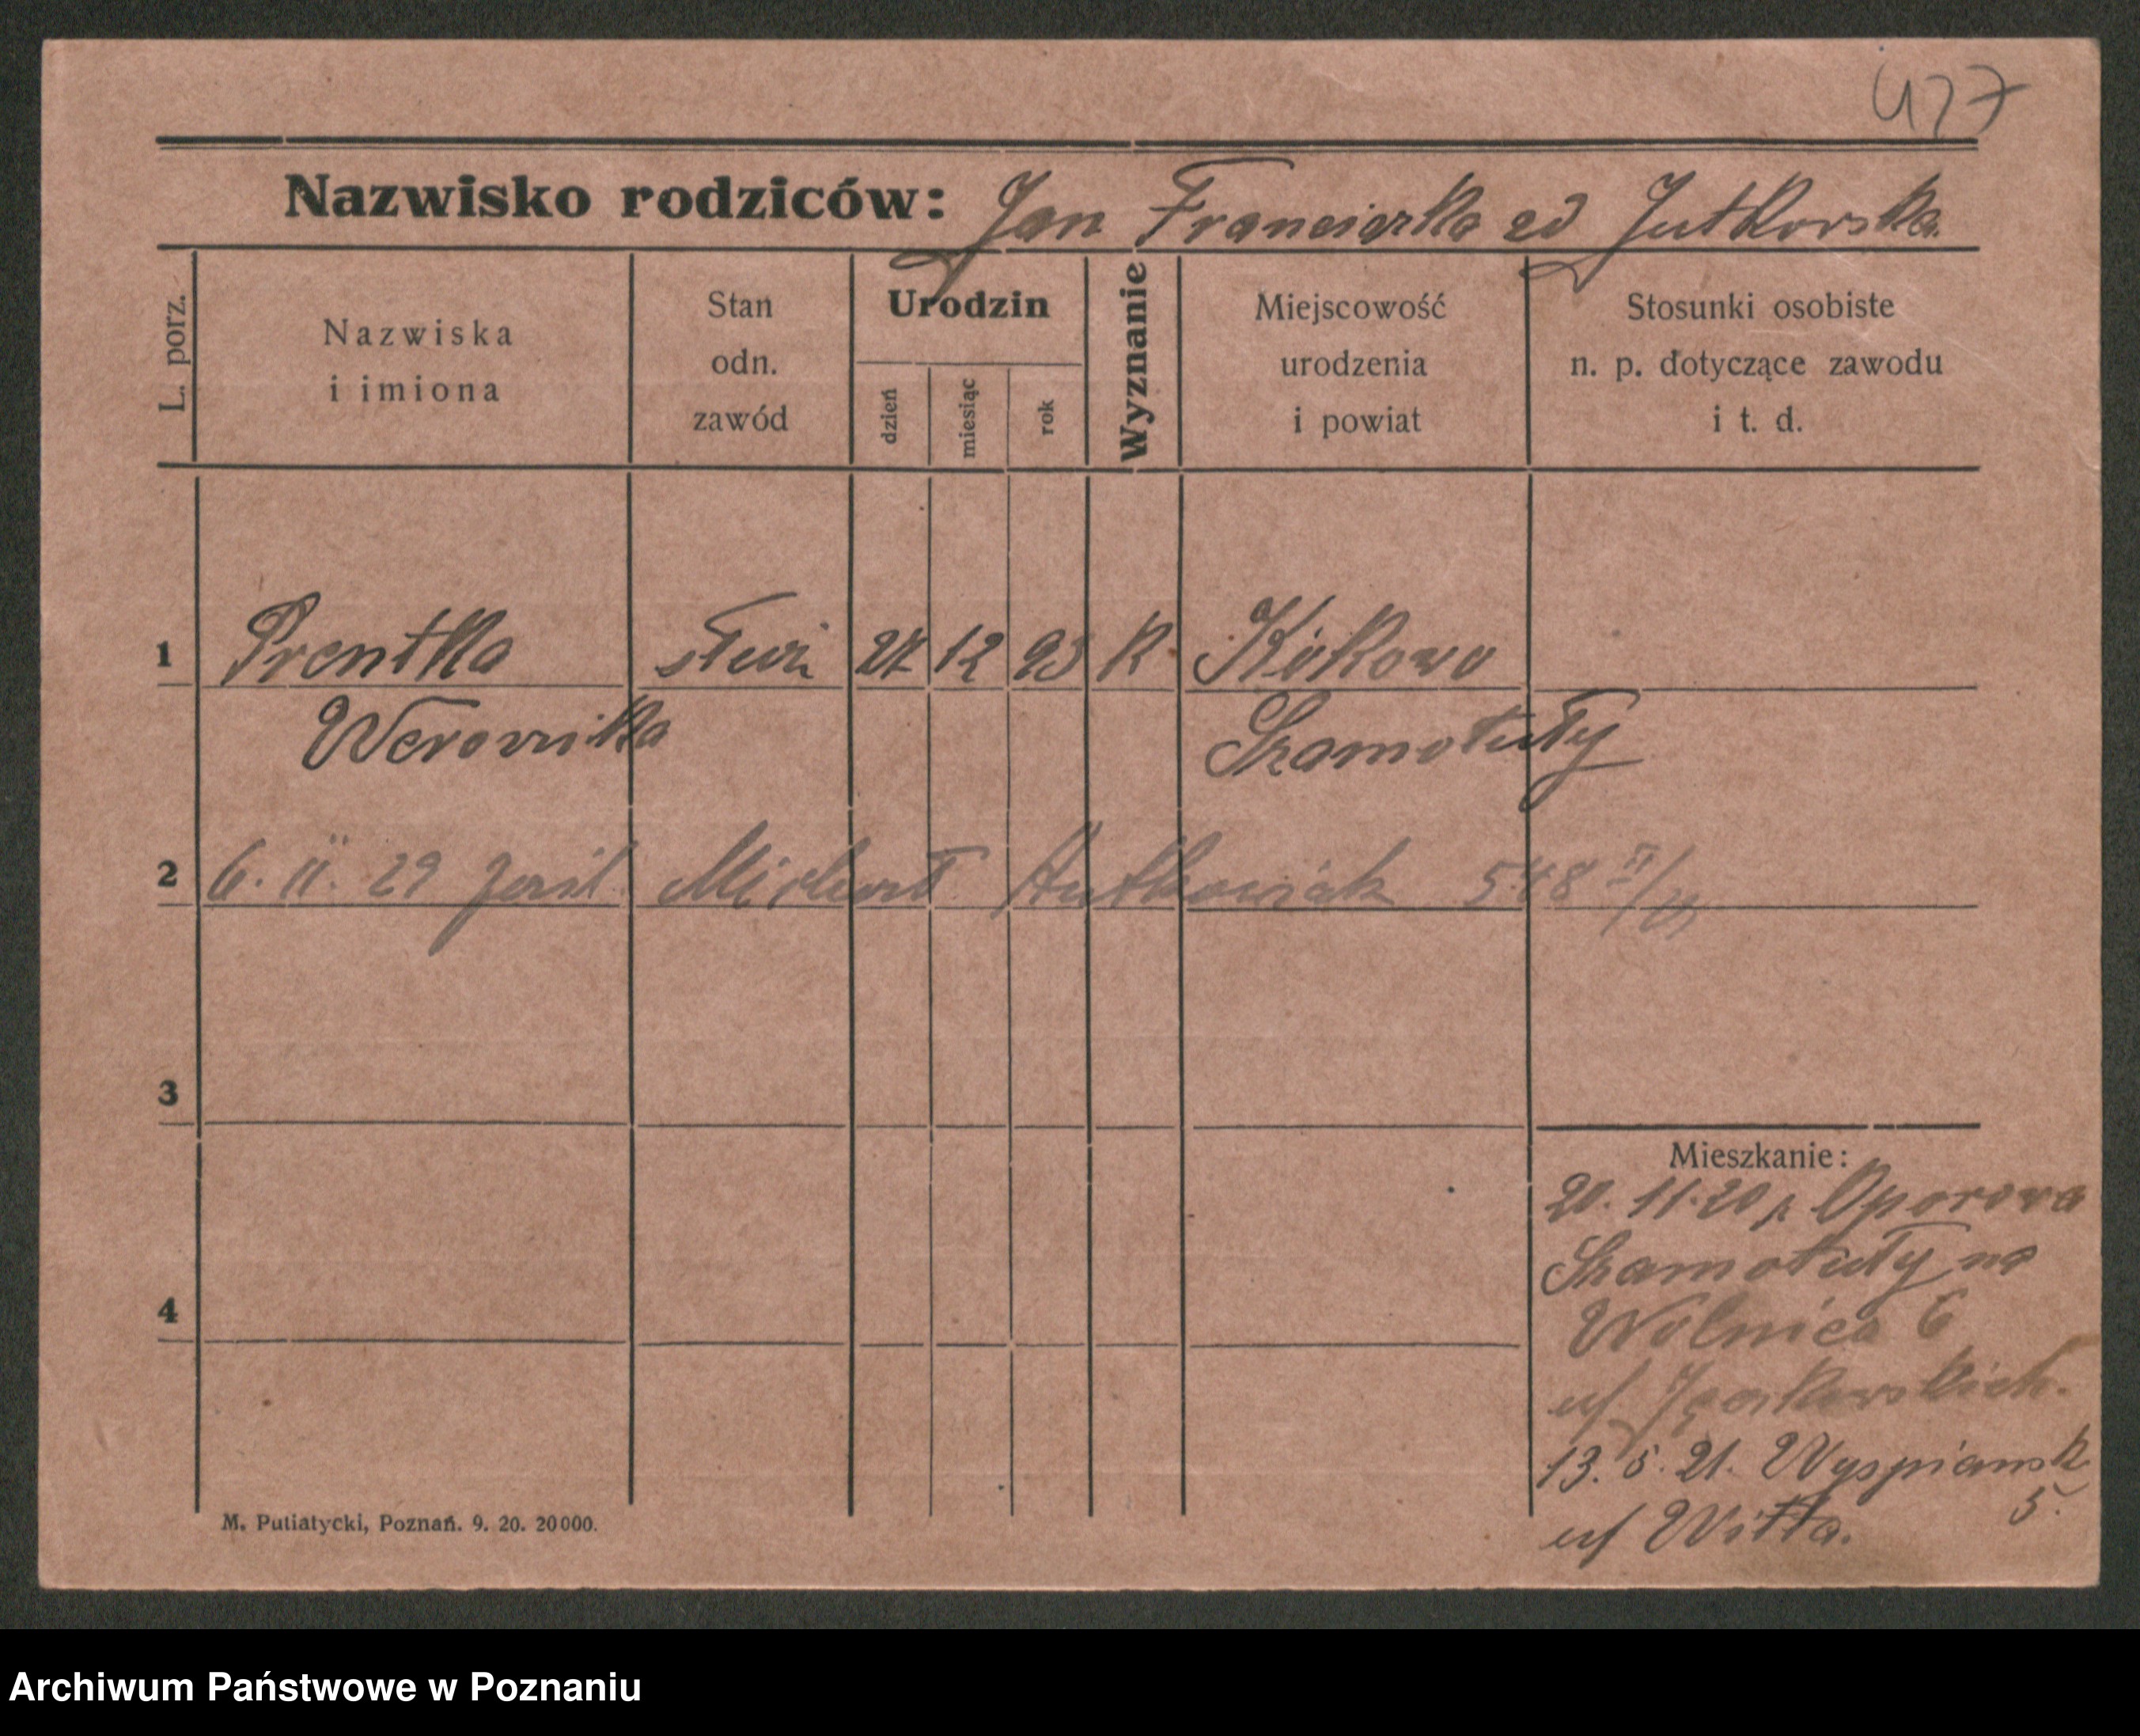 427
Nazwisko rodziców: Jan Franciszka zd Jutkowska
L. porz.
Nazwiska
i imiona
Stan
odn.
zawód
Urodzin
dzień
miesiąc
rok
Wyznanie
Miejscowość
urodzenia
i powiat
Stosunki osobiste
n. p. dotyczące zawodu
i t. d.
1 Prentka służ 27 12 93 K Kikowo
Weronika Szamotuły
2 6. II. 29 Michał 548
3
Mieszkanie:
20. 11. 20 z Oporowa
Szamotuły na
4 Wolnica 6
u/
13. 5. 21. Wyspiańsk
5.
u/ Witta.
M. Putiatycki, Poznań. 9. 20. 20000.
Archiwum Państwowe w Poznaniu